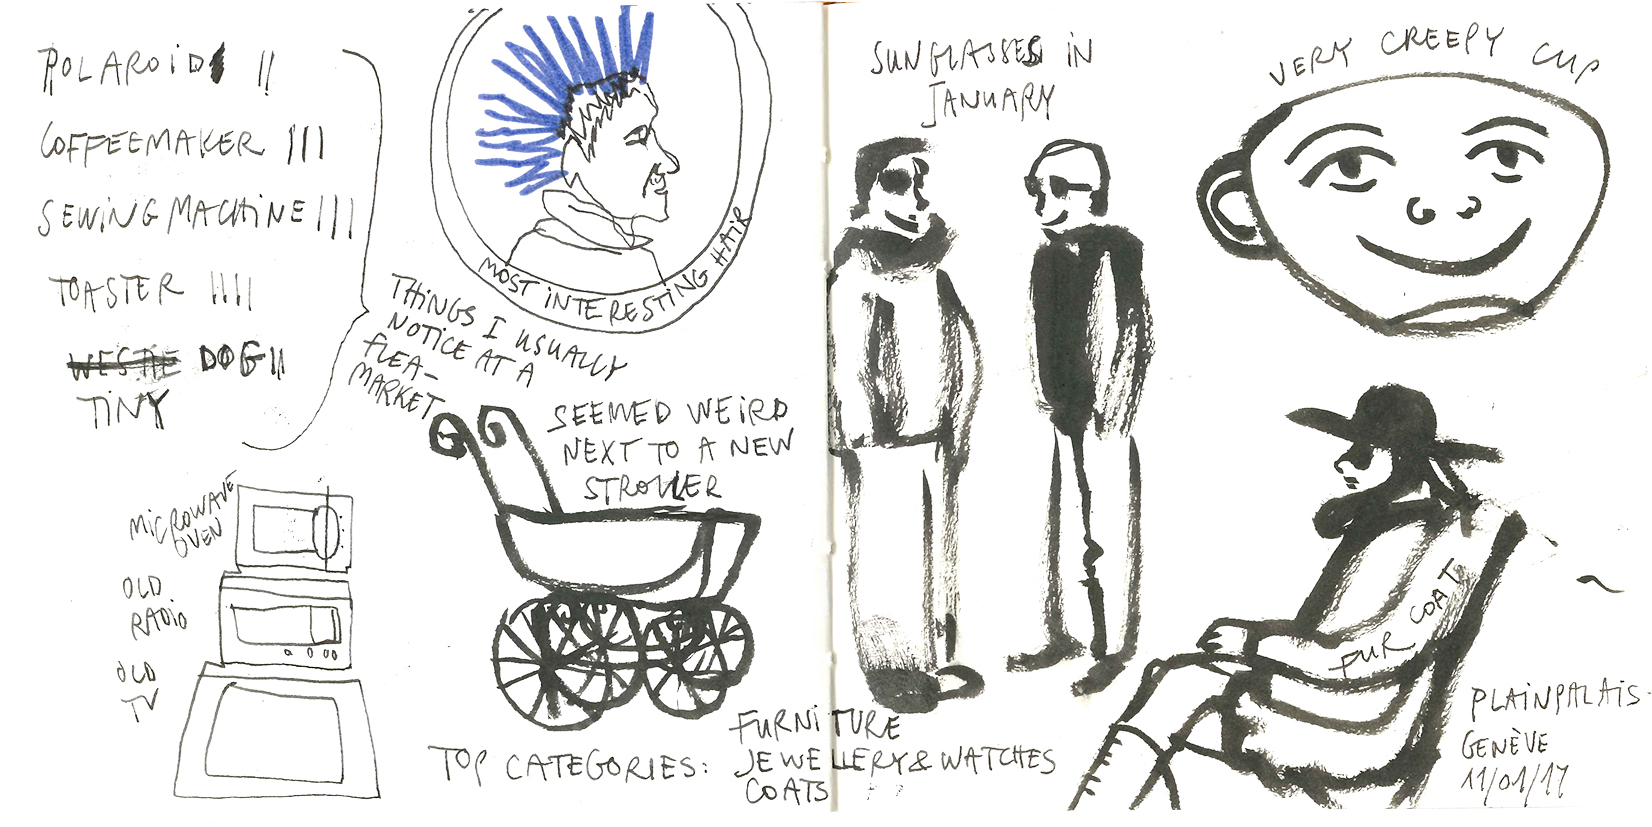 POLAROID II
COFFEEMAKER III
SEWING MACHINE III
TOASTER IIII
WESTIE DOG II
TINY
THINGS I USUALLY
NOTICE AT A
FLEA-
MARKET
MOST INTERESTING HAIR
MICROWAVE
OVEN
OLD
RADIO
OLD
TV
SEEMED WEIRD
NEXT TO A NEW
STROLLER
TOP CATEGORIES:
FURNITURE
JEWELLERY & WATCHES
COATS
SUNGLASSES IN
JANUARY
VERY CREEPY CUP
FUR COAT
PLAINPALAIS
GENÈVE
11/01/17